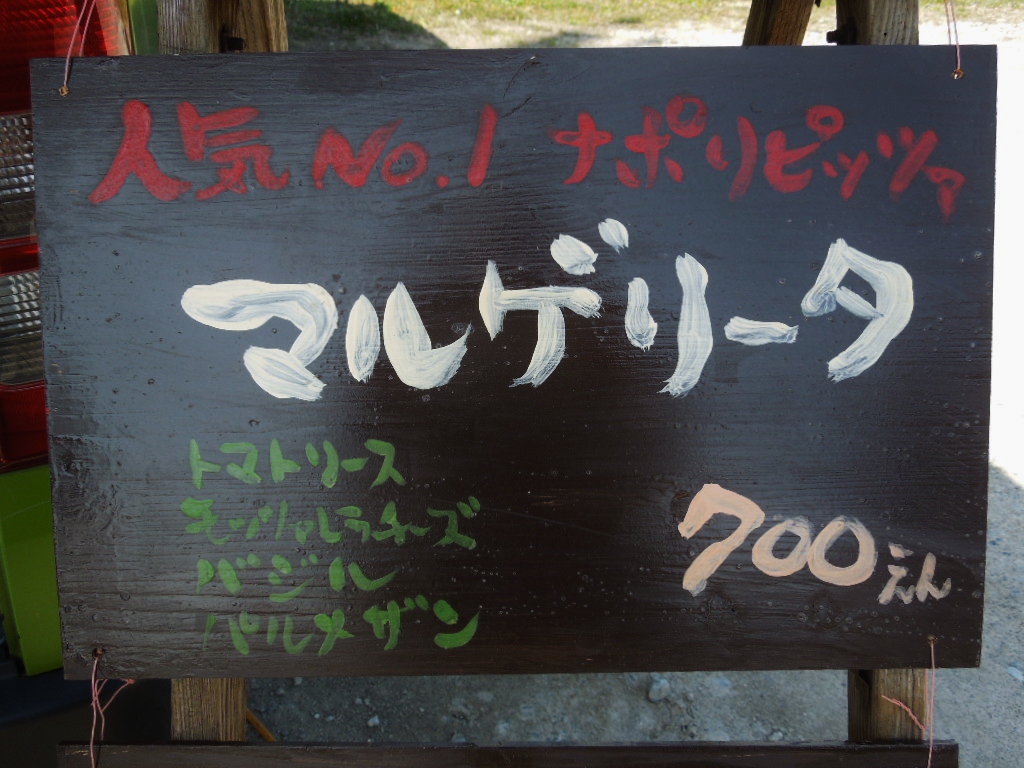 人気No.1 ナポリピッツァ
マルゲリータ
トマトソース
モッツァレラチーズ
バジル
パルメザン
700えん